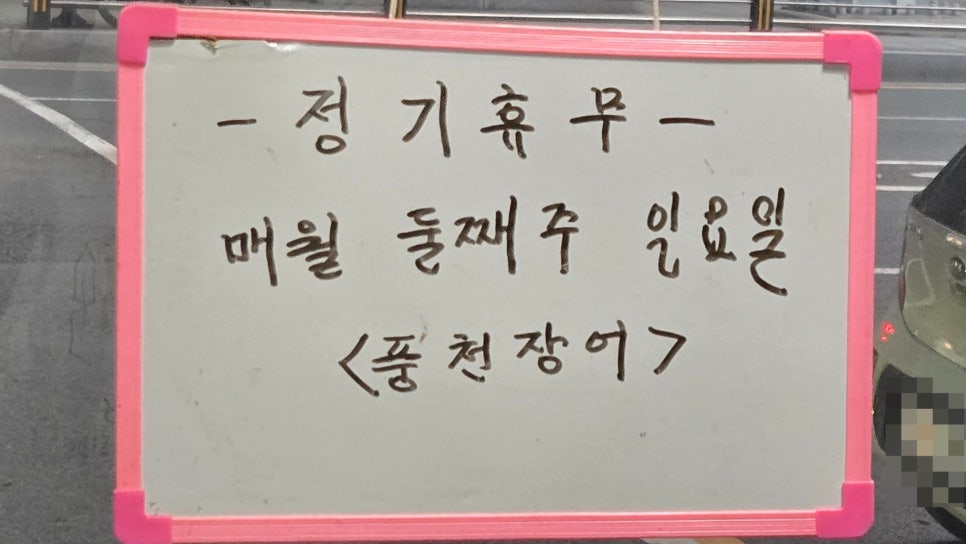 - 정기휴무 -
매월 둘째주 일요일
<풍천장어>